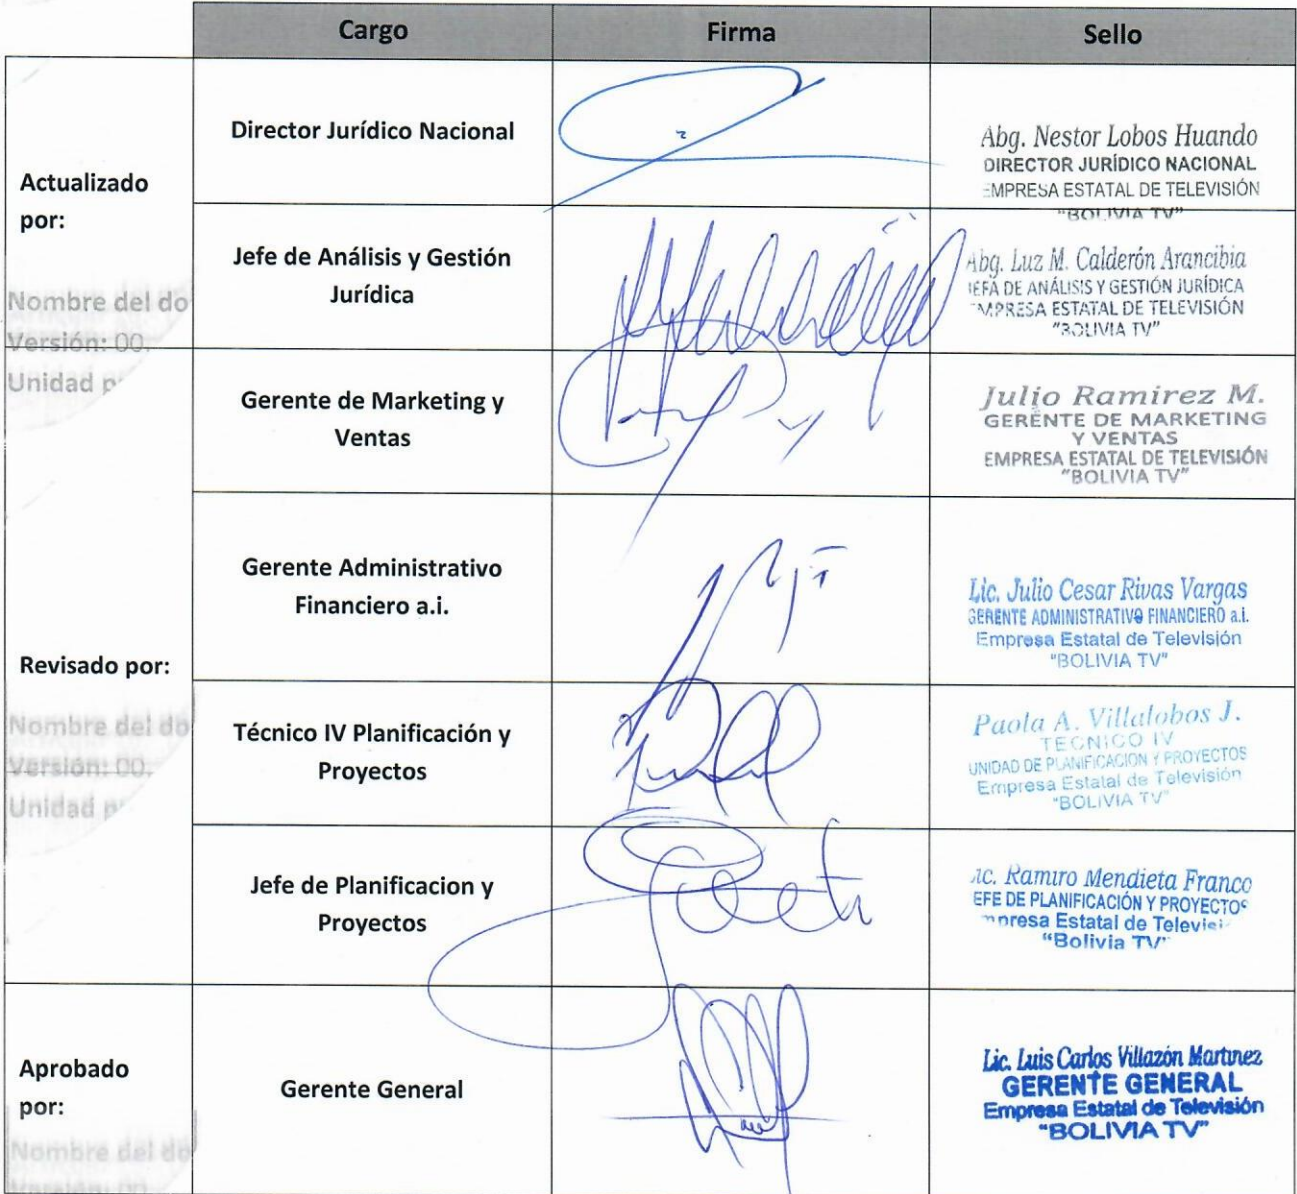 Cargo Firma Sello
Actualizado
por:
Director Jurídico Nacional
Abg. Nestor Lobos Huando
DIRECTOR JURÍDICO NACIONAL
EMPRESA ESTATAL DE TELEVISIÓN
"BOLIVIA TV"
Jefe de Análisis y Gestión
Jurídica
Abg. Luz M. Calderón Arancibia
JEFA DE ANÁLISIS Y GESTIÓN JURÍDICA
EMPRESA ESTATAL DE TELEVISIÓN
"BOLIVIA TV"
Nombre del do
Versión: 00.
Unidad p
Gerente de Marketing y
Ventas
Julio Ramirez M.
GERENTE DE MARKETING
Y VENTAS
EMPRESA ESTATAL DE TELEVISIÓN
"BOLIVIA TV"
Revisado por:
Gerente Administrativo
Financiero a.i.
Lic. Julio Cesar Rivas Vargas
GERENTE ADMINISTRATIVO FINANCIERO a.i.
Empresa Estatal de Televisión
"BOLIVIA TV"
Nombre del do
Versión: 00.
Unidad p
Técnico IV Planificación y
Proyectos
Paola A. Villalobos J.
TECNICO IV
UNIDAD DE PLANIFICACION Y PROYECTOS
Empresa Estatal de Televisión
"BOLIVIA TV"
Jefe de Planificacion y
Proyectos
Lic. Ramiro Mendieta Franco
JEFE DE PLANIFICACIÓN Y PROYECTOS
Empresa Estatal de Televisi
"Bolivia TV"
Aprobado
por:
Gerente General
Lic. Luis Carlos Villazón Martinez
GERENTE GENERAL
Empresa Estatal de Televisión
"BOLIVIA TV"
Nombre del do
Versión: 00